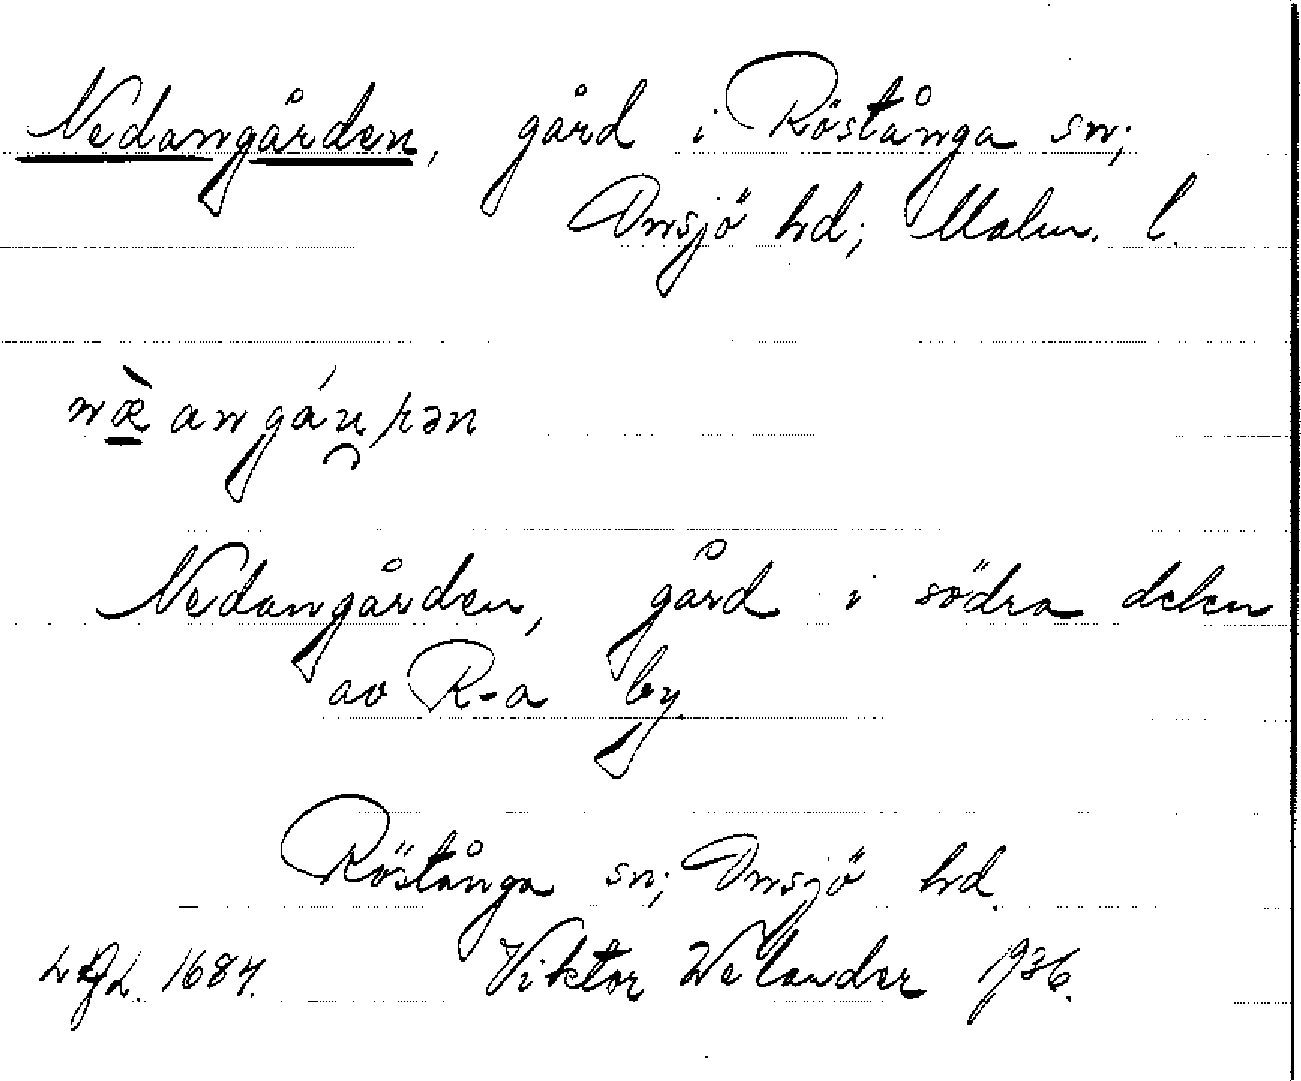 Nedangården, gård i Röstånga sn;
Onsjö hd; Malm. l.
Nedangården, gård i södra delen
av R-a by.
Röstånga sn; Onsjö hd.
Viktor Welander 1936.